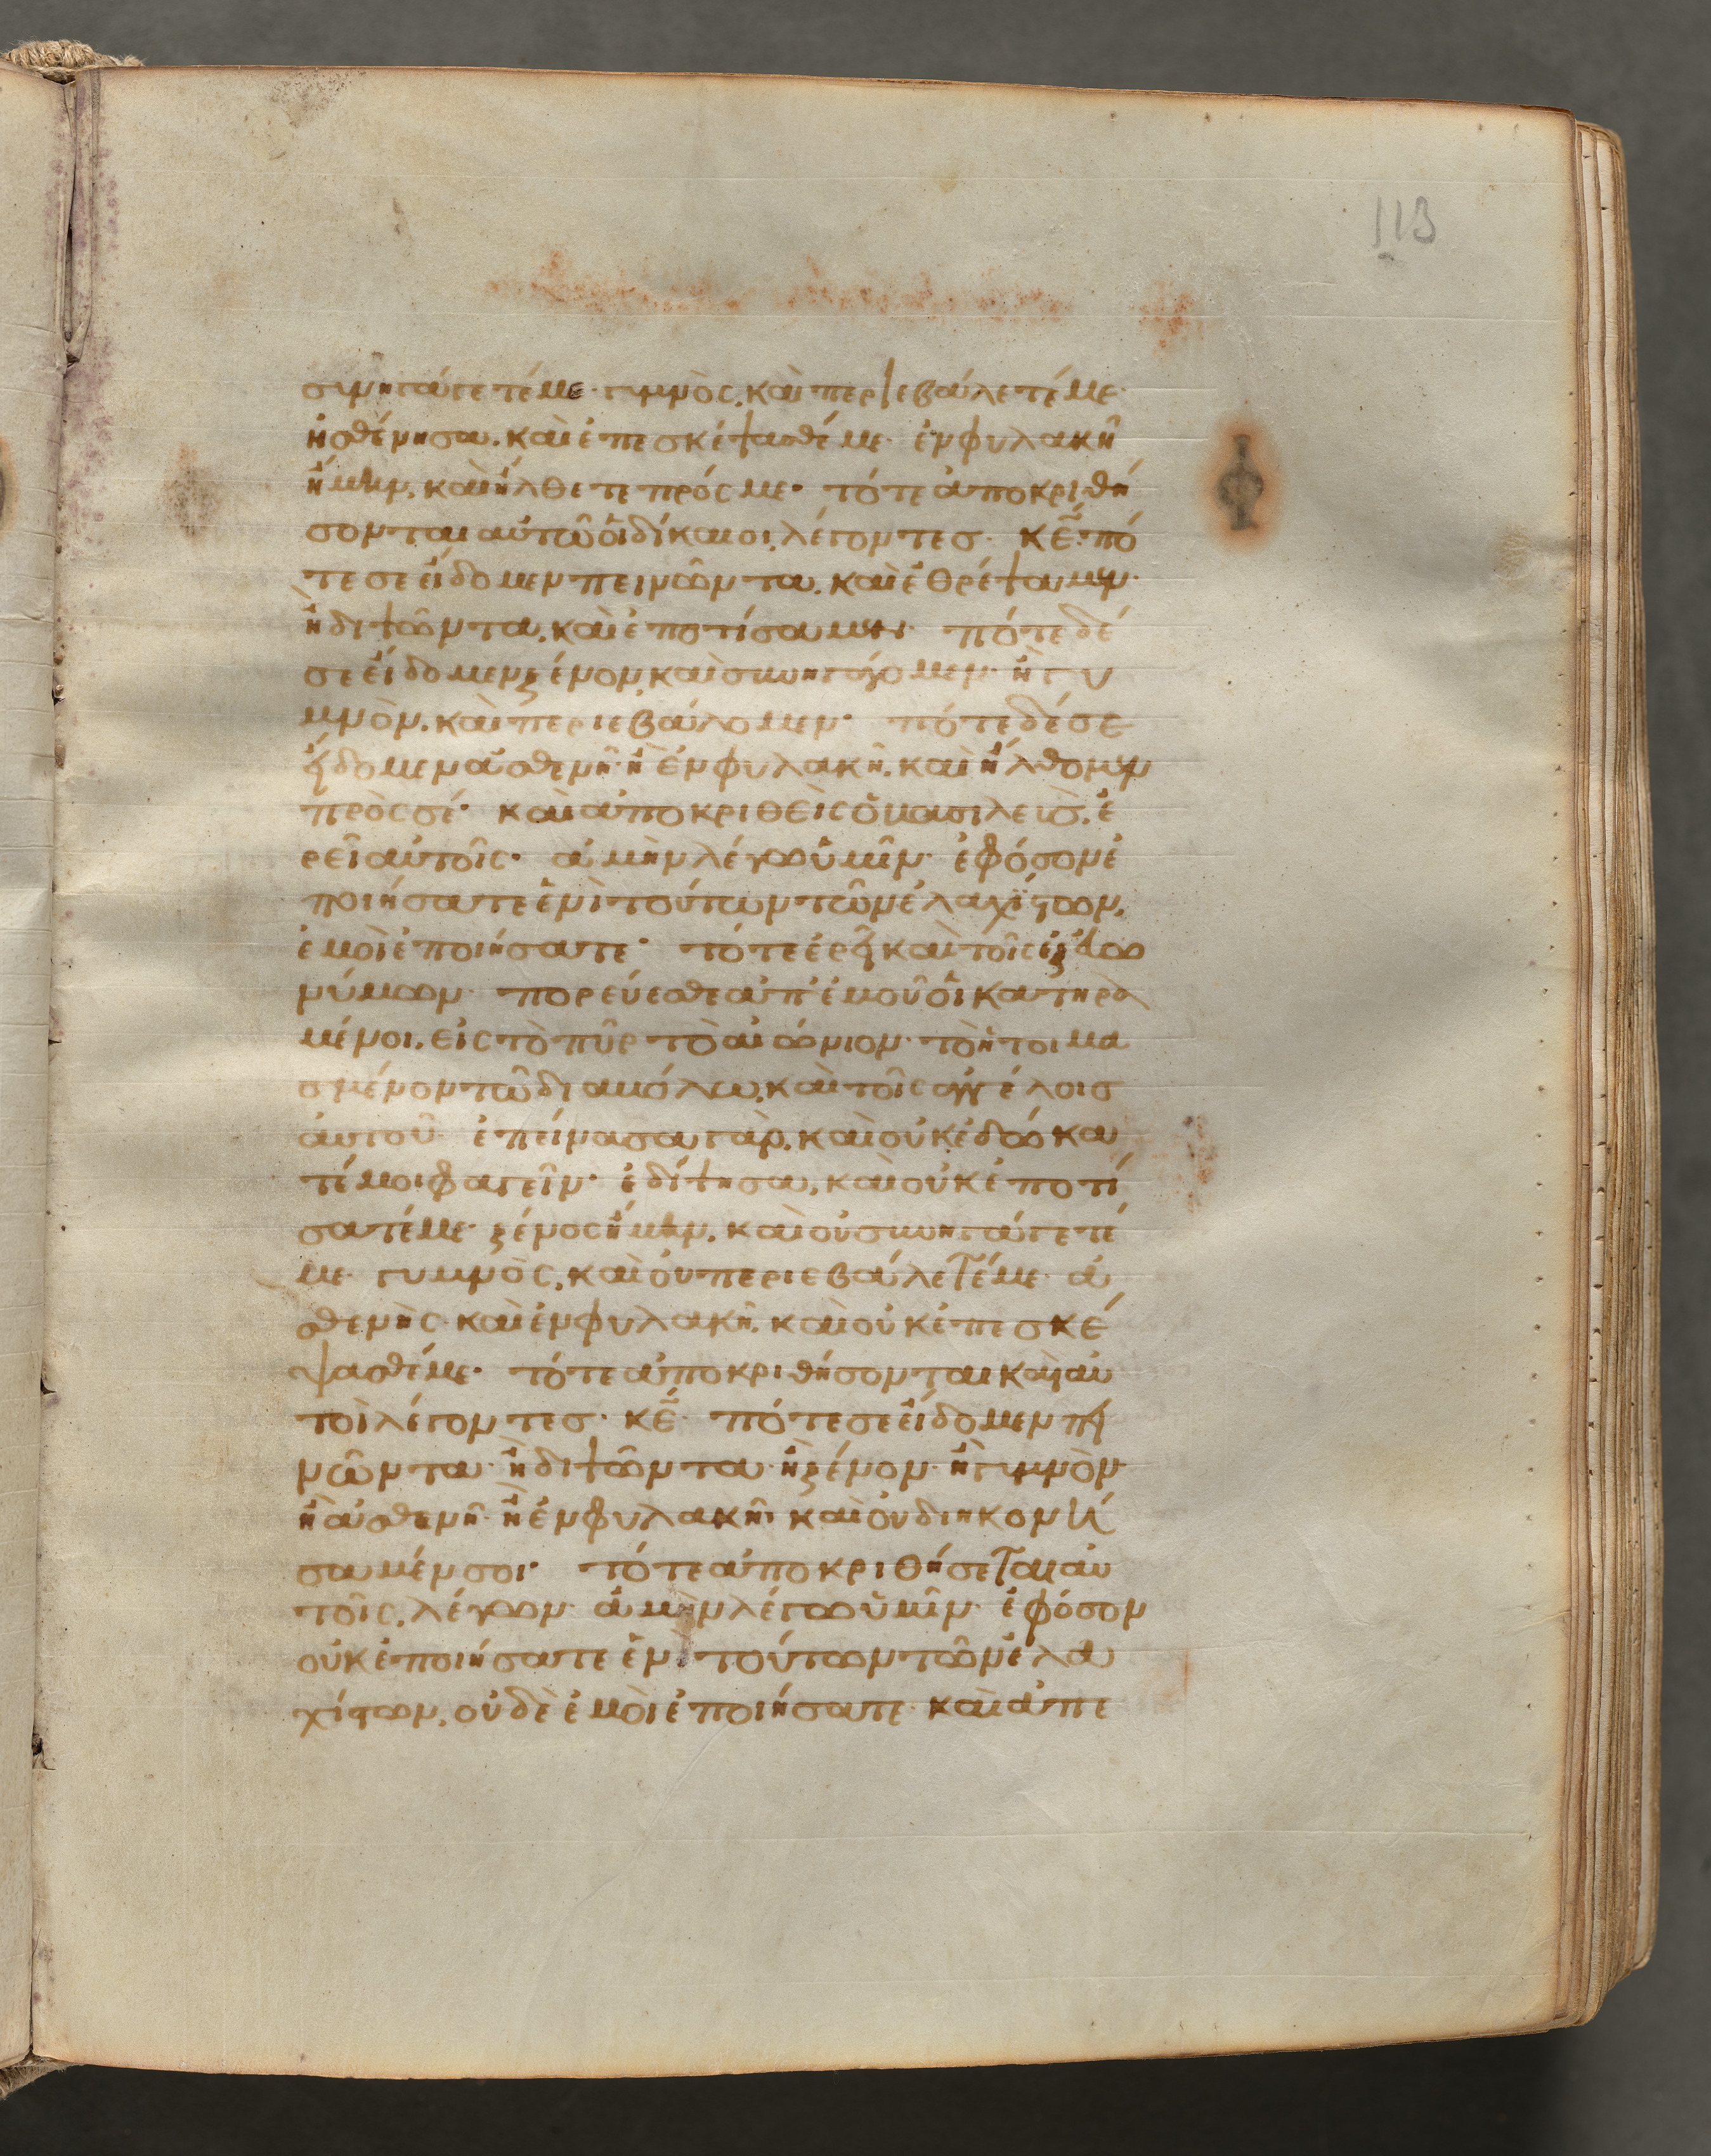 113
συνηγάγετέ με· γυμνὸς, καὶ περιεβάλετέ με·
ἠσθένησα, καὶ ἐπεσκέψασθέ με· ἐν φυλακῆ
ἤμην, καὶ ἤλθετε πρός με· τότε ἀποκριθή
σονται αὐτῶ οἱ δίκαιοι, λέγοντεσ· κ̅ε̅· πό
τε σε εἴδομεν πεινῶντα, καὶ ἐθρέψαμεν·
ἢ διψῶντα, καὶ ἐποτίσαμεν· πότε δέ
σε εἴδομεν ξένον, καὶ συνηγάγομεν· ἢ γυ
μνὸν, καὶ περιεβάλομεν· πότε δέ σε
εἴδομεν ἀσθενῆ· ἢ ἐν φυλακῆ, καὶ ἤλθομεν
πρὸς σέ· καὶ ἀποκριθεὶς ὁ βασιλεὺς, ἐ
ρεῖ αὐτοῖς· ἀμὴν λέγω ὑμῖν· ἐφόσον ἐ
ποιήσατε ἑνὶ τούτων τῶν ἐλαχίστων,
ἐμοὶ ἐποιήσατε· τότε ἐρεῖ καὶ τοῖς ἐξ εὐω
νύμων· πορεύεσθε ἀπ' ἐμοῦ οἱ κατηρα
μένοι, εἰς τὸ πῦρ τὸ αἰώνιον· τὸ ἡτοιμα
σμένον τῶ διαβόλω, καὶ τοῖς ἀγγέλοισ
αὐτοῦ· ἐπείνασα γὰρ, καὶ οὐκ ἐδώκα
τέ μοι φαγεῖν· ἐδίψησα, καὶ οὐκ ἐποτί
σατέ με· ξένος ἤμην, καὶ οὐ συνηγάγετέ
με· γυμνὸς, καὶ οὐ περιεβάλετέ με· ἀ
σθενὴς καὶ ἐν φυλακῆ, καὶ οὐκ ἐπεσκέ
ψασθέ με· τότε ἀποκριθήσονται καὶ αὐ
τοὶ λέγοντεσ· κ̅ε̅· πότε σε εἴδομεν πει
νῶντα· ἢ διψῶντα· ἢ ξένον· ἢ γυμνὸν·
ἢ ἀσθενῆ· ἢ ἐν φυλακῆ· καὶ οὐ διηκονή
σαμέν σοι· τότε ἀποκριθήσεται αὐ
τοῖς, λέγων· ἀμὴν λέγω ὑμῖν· ἐφόσον
οὐκ ἐποιήσατε ἑνὶ τούτων τῶν ἐλα
χίστων, οὐδὲ ἐμοὶ ἐποιήσατε· καὶ ἀπε